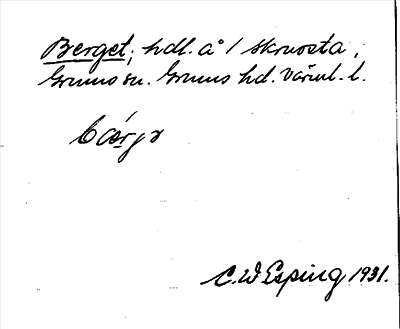 Berget, hdl. å 1 Skruvsta,
Grums sn. Grums hd. Värml. l.
bærjə
C. W Esping 1931.